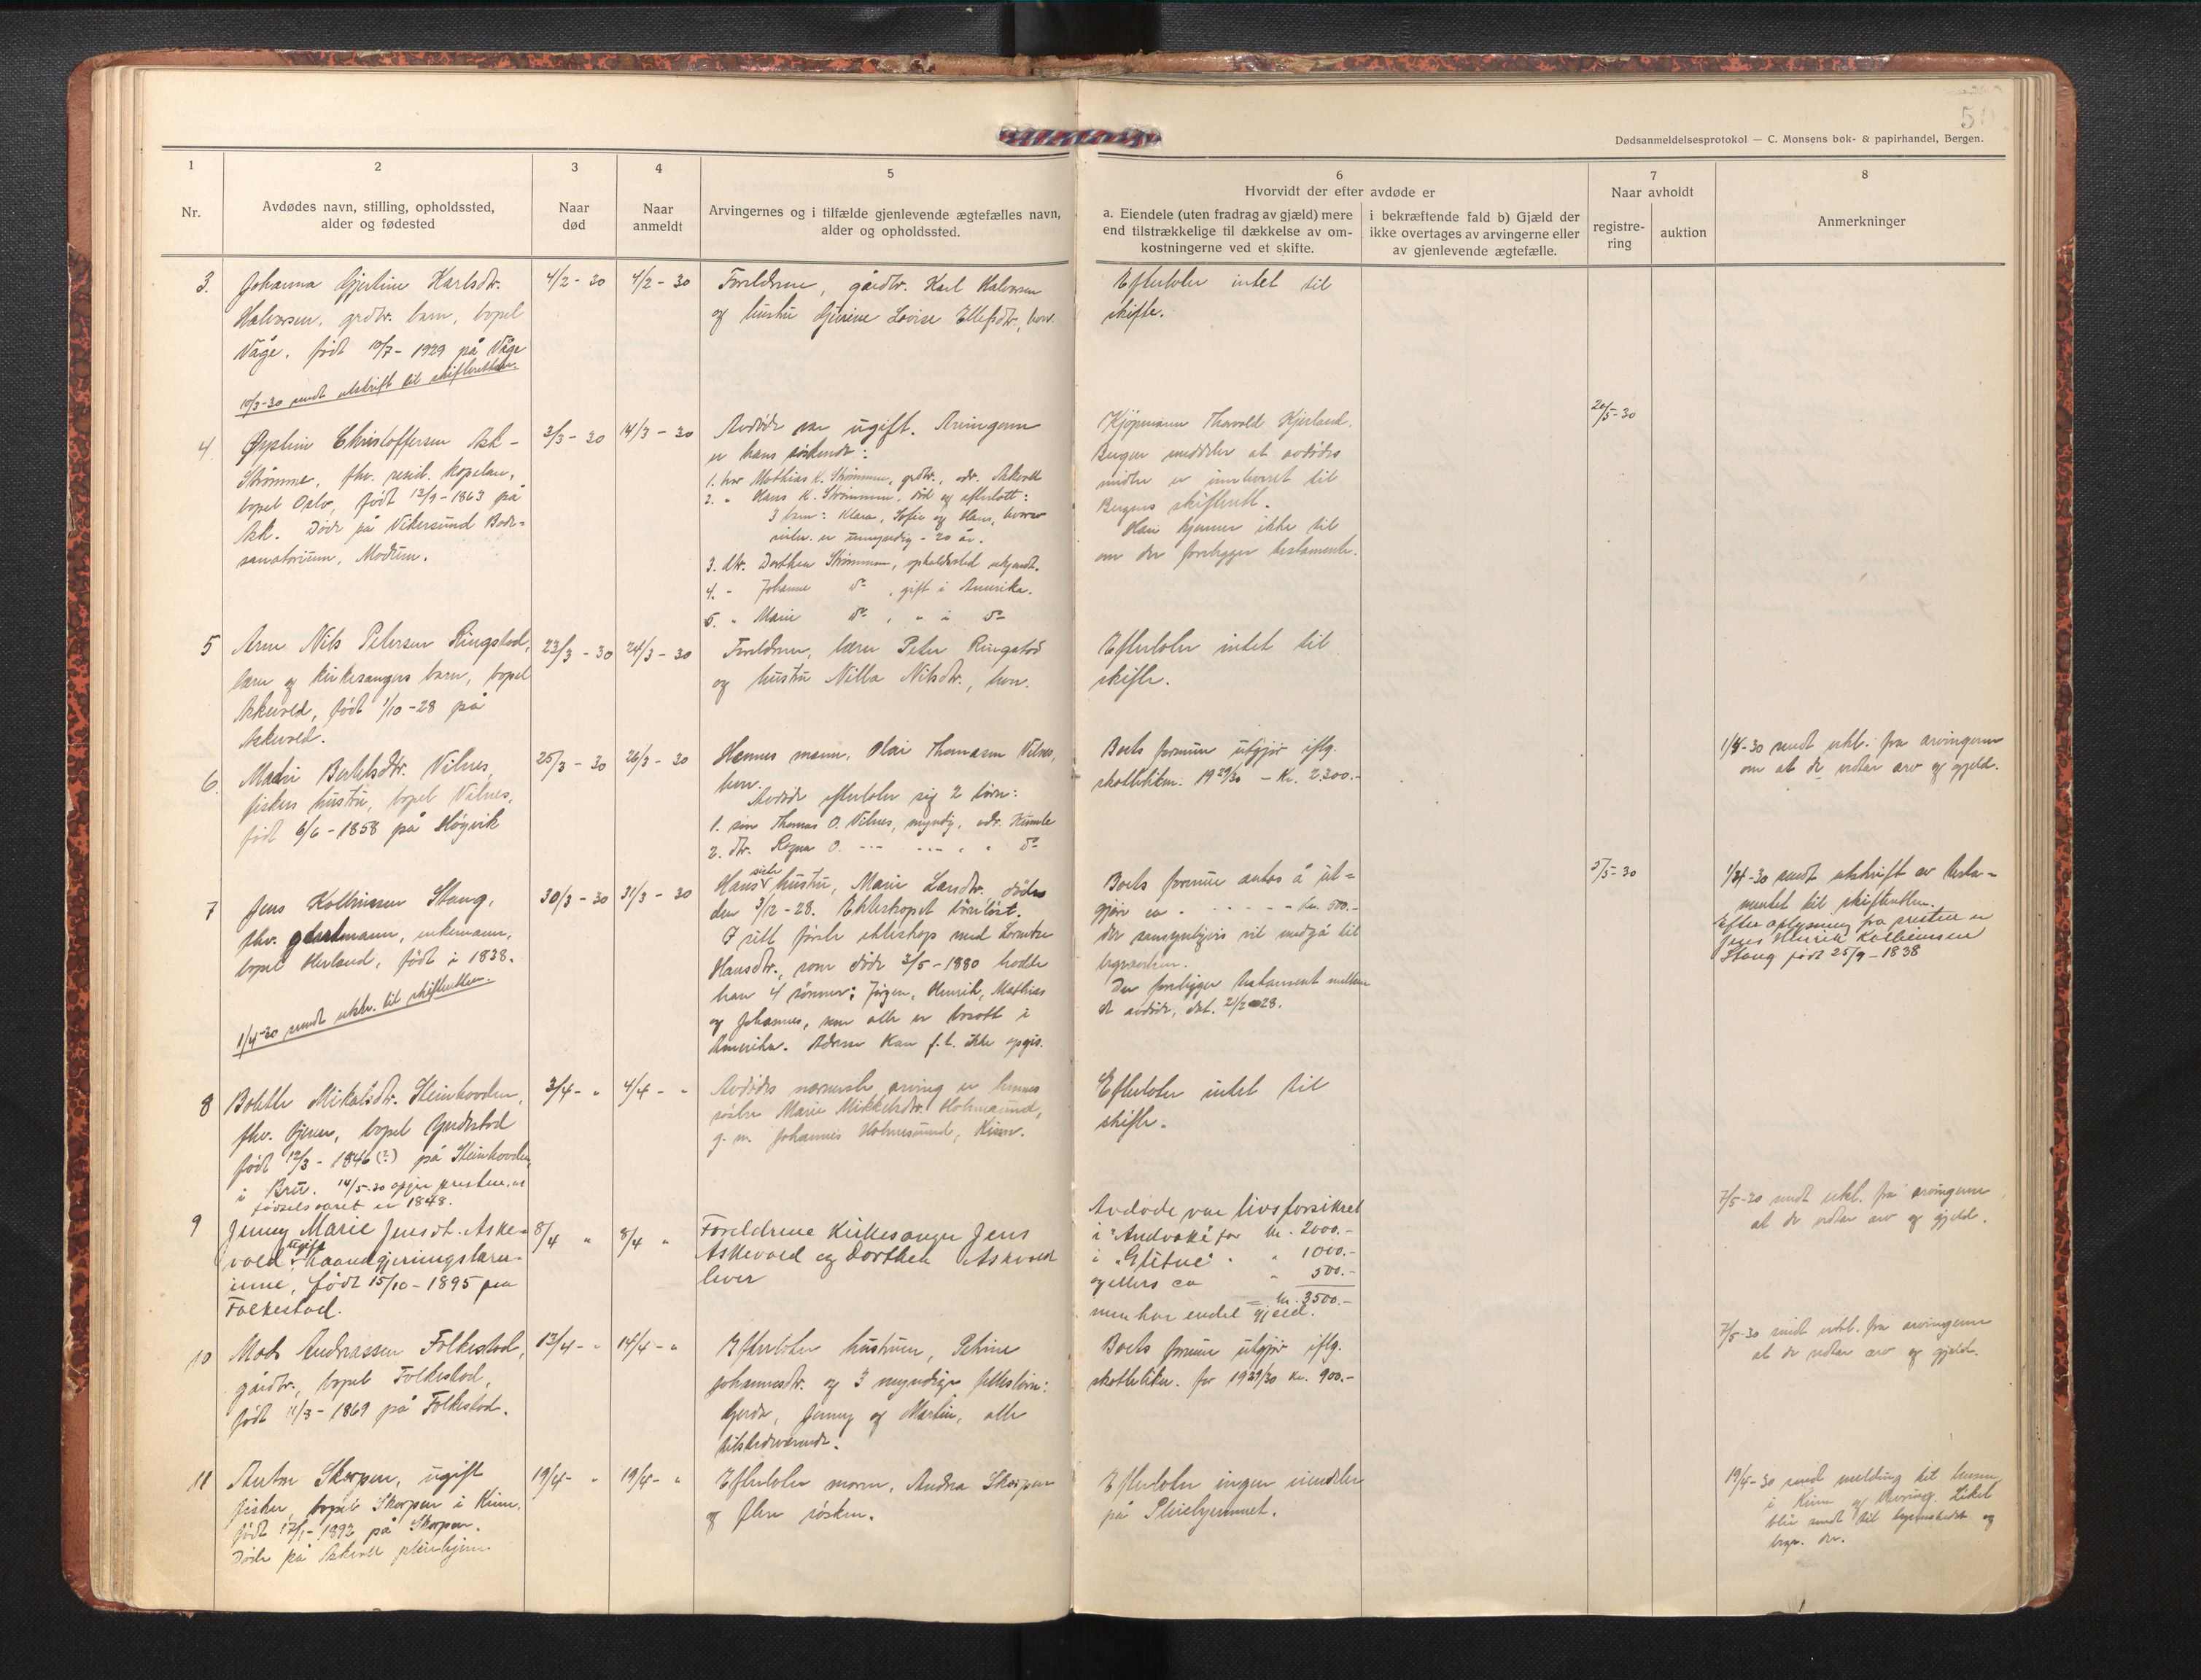 51
Dødsanmeldelsesprotokol — C. Monsens bok- & papirhandel, Bergen.
1
Nr.
2
Avdødes navn, stilling, opholdssted,
alder og fødested
3
Naar
død
4
Naar
anmeldt
5
Arvingernes og i tilfælde gjenlevende ægtefælles navn,
alder og opholdssted.
6
Hvorvidt der efter avdøde er
a. Eiendele (uten fradrag av gjæld) mere
end tilstrækkelige til dækkelse av om-
kostningerne ved et skifte.
i bekræftende fald b) Gjæld der
ikke overtages av arvingerne eller
av gjenlevende ægtefælle.
7
Naar avholdt
registre-
ring
auktion
8
Anmerkninger
3.
Johanna Gjertine Karlsdtr.
Halvorsen, grdbr. barn, bopel
Våge, født 10/7 - 1929 på Våge
10/3-30 sendt utskrift til skifteretten.
4/2 - 30
4/2 - 30
Foreldrene, gårdbr. Karl Halvorsen
og hustru Gjerine Lovise Ellefsdtr., herv.
Efterlater intet til
skifte.
4.
Øystein Christoffersen Ask -
Strömme, fhv. resid. kapelan,
bopel Oslo, født 13/9 - 1863 på
Ask. Døde på Vikersund Bade-
sanatorium, Modum.
3/3 - 30
14/3 - 30
Avdøde var ugift. Arvingene
er hans søskende:
1. bror Mathias K. Strömmen, grdbr., adr. Askvoll
2. " Hans K. Strömmen, död og efterlatt:
3 barn: Klara, Sofie og Hans, hvorav
er umyndig - 20 år.
3. dtr. Dorthea Strömmen, opholdssted ukjendt.
4. - Johanne do , gift i Amerika.
5. " Marie do , " i do
Kjöpmann Thorvald Kjerland.
Bergen meddeler at avdødes
midler er innberettet til
Bergens skifterett.
Han kjenner ikke til
om der foreligger testamente.
20/5-30
5
Arne Nils Petersen Ringstad,
lærer og kirkesangers barn, bopel
Askvold, født 1/10 - 28 på
Askvold.
23/3 - 30
24/3 - 30
Foreldrene, lærer Peter Ringstad
og hustru Nilla Nilsdtr., herv.
Efterlater intet til
skifte.
6.
Madri Bertelsdtr. Vilnes,
fiskers hustru, bopel Vilnes,
født 6/6 - 1858 på Høyvik
25/3 - 30
26/3 - 30
Hennes mann, Olai Thomasen Vilnes,
herv.
Avdøde efterlater sig 2 barn:
1. sön Thomas O. Vilnes, myndig, adr. Kumle
2. dtr. Ragna O. --- --- , " do
Boets formue utgjør iflg.
skattelikn. 1929/30 - Kr. 2300.-
1/4-30 sendt erkl. fra arvingerne
om at de vedtar arv og gjeld.
7
Jens Kolbeinsen Stang,
fhv. gårdmann, enkemann,
bopel Herland, født i 1838.
1/4-30 sendt utskr. til skifteretten.
30/3 - 30
31/3 - 30
Hans siste hustru, Marie Larsdtr. døde
den 3/12 - 28. Ekteskapet barnløst.
I sitt første ekteskap med
Hansdtr., som døde 3/5 - 1880 hadde
han 4 sønner: Jörgen, Henrik, Mathias
og Johannes, som alle er bosatt i
Amerika. Adresse kan f.t. ikke opgis.
Boets formue antas å ut-
gjøre ca - - - - - - kr. 500.-
der sansynligvis vil medgå til
begravelsen.
Der foreligger testament mellem
de avdøde, dat. 21/2-28.
2/5-30
1/4-30 sendt utskrift av testa-
mentet til skifteretten.
Efter oplysning fra presten er
Jens Henrik Kolbeinsen
Stang født 25/9 - 1838
8
Bolette Mikalsdtr. Steinhovden,
fhv. tjener, bopel Grdestad
født 12/3 - 1846 (?) på Steinhovden
i Bru. 14/5-30 opgir presten at
fødselsaaret er 1848.
3/4 - "
4/4 - "
Avdødes nærmeste arving er hennes
søster Marie Mikkelsdtr. Holmesund,
g. m. Johannes Holmesund, Kinn.
Efterlater intet til
skifte.
9
Jenny Marie Jensdt. Aske-
vold. ugift Haandgjerningslærer-
inne, født 15/10 - 1895 paa
Folkestad.
8/4 "
8/4 "
Foreldrene Kirkesanger Jens
Askevold og Dorthea Askvold
lever
Avdøde var livsforsikret
i "Andvake" for kr. 2000.-
i "Glitne" - " 1000.-
og ellers ca " 500.-
= kr. 3500.-
men har endel gjeld.
7/5-30 sendt erkl. fra arvingerne
at de vedtar arv og gjeld.
10
Mads Andreassen Folkestad,
gårdbr., bopel Folkestad,
født 11/3 - 1869 på Folkestad.
13/4 - "
14/4 - "
Efterlater hustruen, Petrine
Johannesdtr. og 3 myndige fellesbarn:
Gerda, Jenny og Martin, alle
tilstedeværende.
Boets formue utgjør iflg.
skattelikn. for 1929/30 kr. 900.-
7/5-30 sendt erkl. fra arvingerne
at de vedtar arv og gjeld.
11
Anton Skorpen, ugift
fisker, bopel Skorpen i Kinn.
født 17/1 - 1892 på Skorpen.
Døde på Askvoll pleiehjem.
19/4 - "
19/4 - "
Efterlater moren, Andrea Skorpen
og flere søsken.
Efterlater ingen eiendeler
på Pleiehjemmet.
19/4-30 sendt melding til lensm.
i Kinn og Liket
blir sendt til hjemstedet og
begr. der.